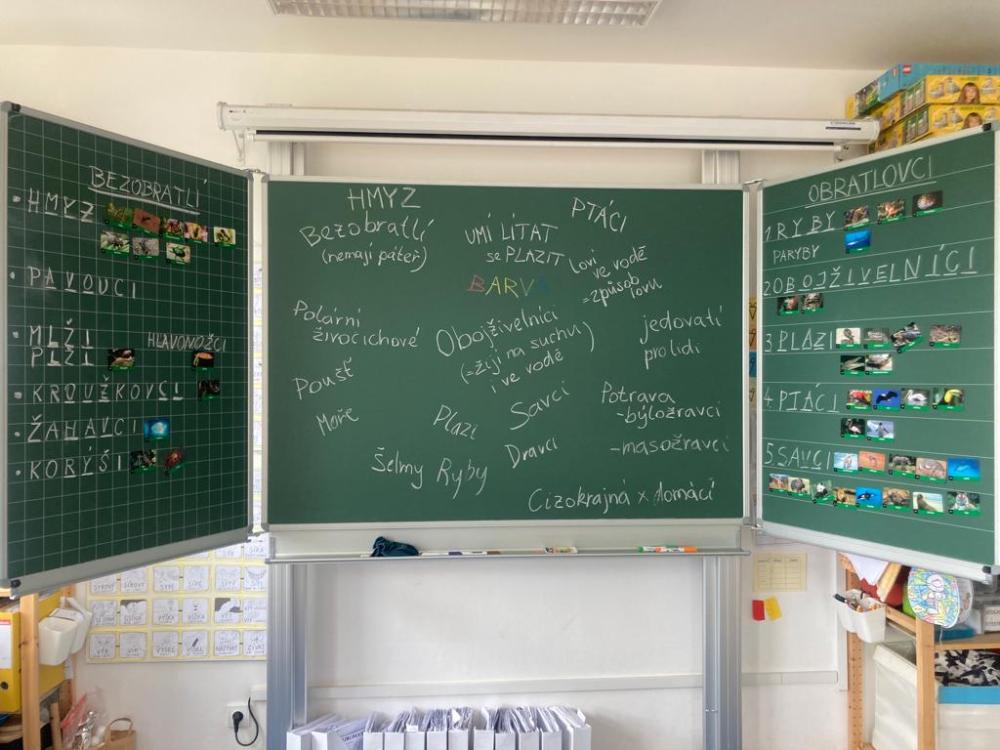 BEZOBRATLÍ
• HMYZ
• PAVOUCI
• MLŽI
PLŽI
HLAVONOŽCI
• KROUŽKOVCI
• ŽAHAVCI
• KORÝŠI
HMYZ
Bezobratlí
(nemají páteř)
UMÍ LÍTAT
se PLAZIT
BARVA
PTÁCI
Loví
ve vodě
=způsob
lovu
Polární
živočichové
Obojživelníci
(=žijí na suchu)
i ve vodě
jedovatí
pro lidi
Poušť
Moře
Plazi
Savci
Potrava
-býložravci
-masožravci
Šelmy
Ryby
Dravci
Cizokrajná x domácí
OBRATLOVCI
1 RYBY
PARYBY
2 OBOJŽIVELNÍCI
3 PLAZI
4 PTÁCI
5 SAVCI